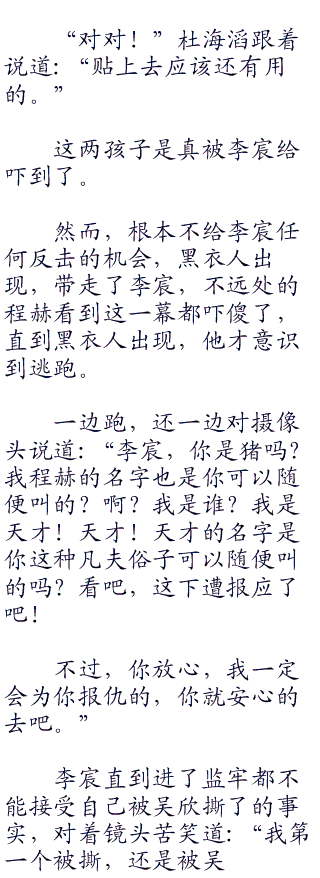 “对对！”杜海滔跟着
说道：“贴上去应该还有用
的。”
这两孩子是真被李宸给
吓到了。
然而，根本不给李宸任
何反击的机会，黑衣人出
现，带走了李宸，不远处的
程赫看到这一幕都吓傻了，
直到黑衣人出现，他才意识
到逃跑。
一边跑，还一边对摄像
头说道：“李宸，你是猪吗？
我程赫的名字也是你可以随
便叫的？啊？我是谁？我是
天才！天才！天才的名字是
你这种凡夫俗子可以随便叫
的吗？看吧，这下遭报应了
吧！
不过，你放心，我一定
会为你报仇的，你就安心的
去吧。”
李宸直到进了监牢都不
能接受自己被吴欣撕了的事
实，对着镜头苦笑道：“我第
一个被撕，还是被吴